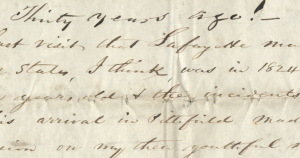 Thirty years ago!—
last visit that Lafayette ma
e States, I think, was in 1824
years old & the incidents
is arrival in Pittsfield mad
sion on my then youthful